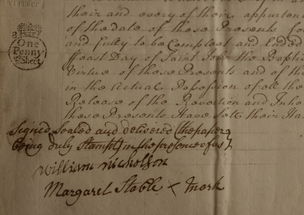 their and every of their appurten
of the date of these Presents for
and fully to be Compleat and Ended
Feast Day of Saint John the Baptist
Virtue of these Presents and of th
in the Actual Possession of all the
Release of the Reversion and Inhe
these Presents Have Sett their Han
ONE
Penny
Sheet
Signed Sealed and delivered (the paper
being duly stampt) in the presence of us
William Nicholson
Margaret Stable × Mark